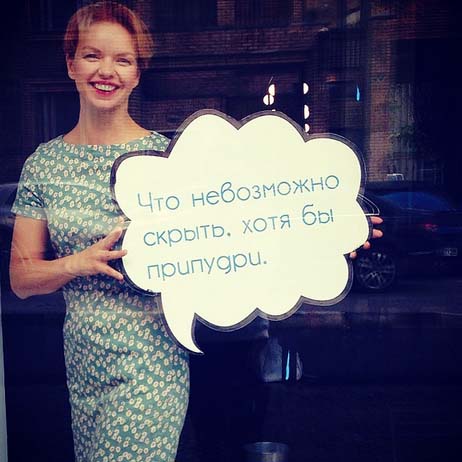 Что невозможно
скрыть, хотя бы
припудри.